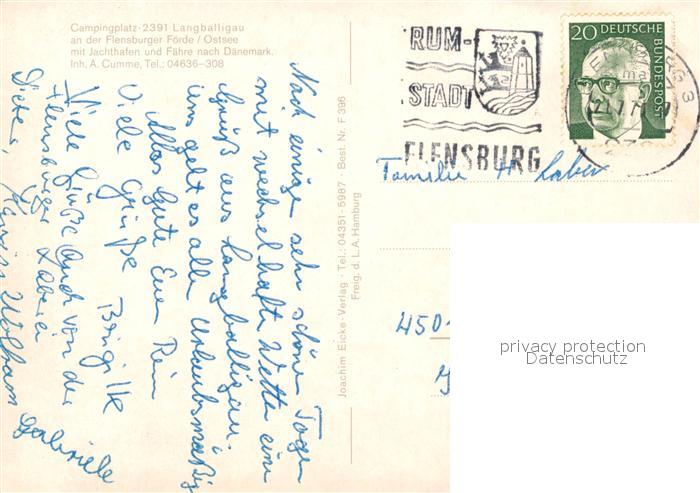 Campingplatz · 2391 Langballigau
an der Flensburger Förde / Ostsee
mit Jachthafen und Fähre nach Dänemark.
Inh. A. Cumme, Tel.: 04636-308
Nach einige sehr schönen Tagen
mit wechselhafte Wetter eine
Gruß aus Langballigau.
uns geht es alle Urlaubsmäßig
Alles Gute Euer
Viele Grüße
Viele Grüße auch von der
Flensburger
Dieter,
Gabriele
Joachim Eicke-Verlag · Tel.: 04351-5987 Best. Nr. F 396
Freig. d. L.A. Hamburg
RUM-
STADT
FLENSBURG
20 DEUTSCHE
BUNDESPOST
Familie H. Laber
450
privacy protection
Datenschutz